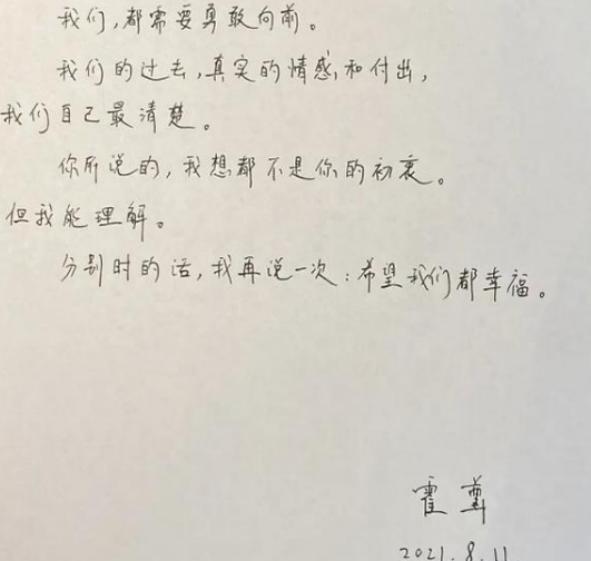 我们,都需要勇敢向前。
我们的过去,真实的情感,和付出,
我们自己最清楚。
你所说的,我想都不是你的初衷。
但我能理解。
分别时的话,我再说一次:希望我们都幸福。
霍尊
2021.8.11